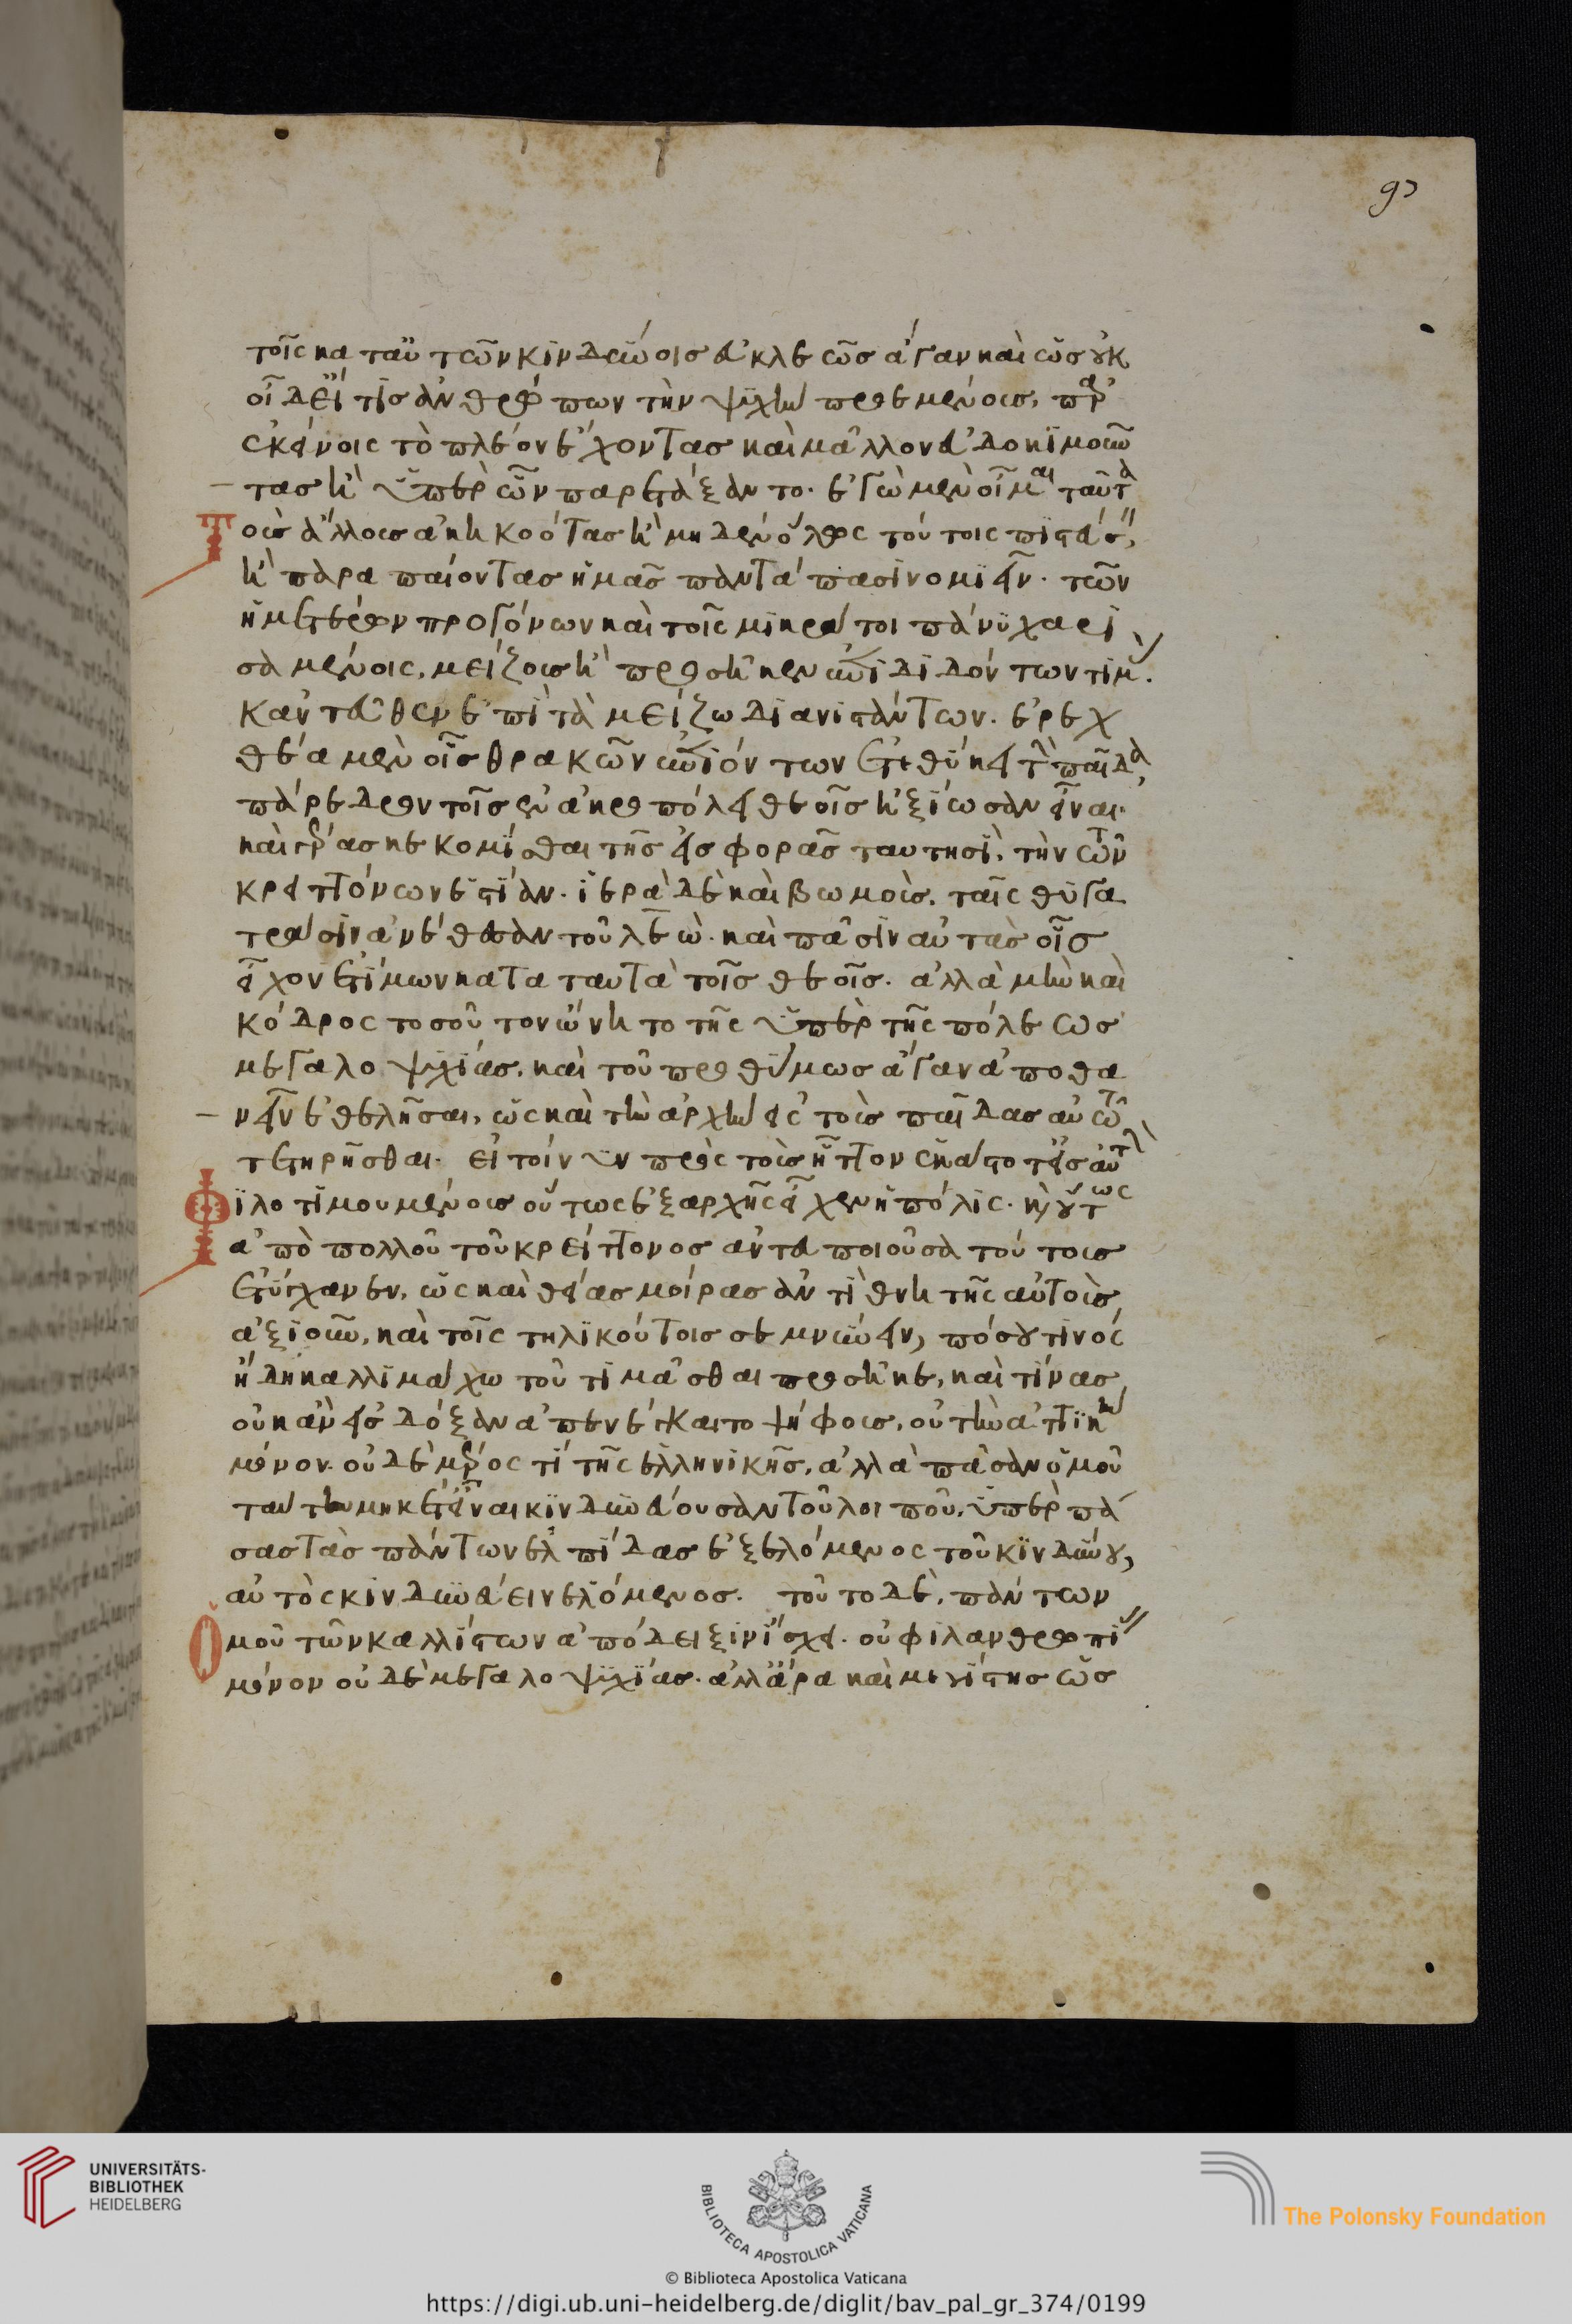 93
τοῖς κατ' αὐτῶν κινδύνοις ἀκλεῶς ἄγαν καὶ ὡς οὐκ
οἶδ' εἴ τις ἀνθρώπων τὴν ψυχὴν προεμένοις, παρ'
ἐκείνοις τὸ πλέον ἔχοντας καὶ μᾶλλον εὐδοκιμοῦν
τας ἢ ὑπὲρ ὧν παρετάξαντο. ἐγὼ μὲν οἶμαι ταῦτα
Τοὺς ἄλλους ἀκηκοότας ἢ μηδὲν ὅλως τούτοις πιστεύσειν,
ἢ παραπαίοντας ἡμᾶς πάντα πᾶσι νομιεῖν. τῶν
ἡμετέρων προγόνων καὶ τοῖς μικρά τοι πάνυ χαρι
σαμένοις, μείζους ἢ προσῆκεν ἀντιδιδόντων τιμὰς.
κἀντεῦθεν ἐπὶ τὰ μείζω διανιστάντων. ἐρεχ
θέα μὲν οἷς θρακῶν ἀνιόντων ἐτεθύκει τὴν παῖδα,
πάρεδρον τοῖς ἐν ἀκροπόλει θεοῖς ἠξίωσαν εἶναι.
καὶ γέρας κεκομίσθαι τῆς εἰσφορᾶς ταυτησὶ, τὴν τῶν
κρειττόνων ἑστίαν. ἱερὰ δὲ καὶ βωμοὺς, ταῖς θυγα
τράσιν ἀνέθεσαν τοῦ λεὼ. καὶ πᾶσιν αὐτὰς οἷς
εἶχον ἐτίμων κατὰ ταυτὰ τοῖς θεοῖς. ἀλλὰ μὴν καὶ
κόδρος τοσοῦτον ὤνητο τῆς ὑπὲρ τῆς πόλεως
μεγαλοψυχίας, καὶ τοῦ προθύμως ἄγαν ἀποθα
νεῖν ἐθελῆσαι, ὡς καὶ τὴν ἀρχὴν ἐς τοὺς παῖδας αὐτῶ
τετηρῆσθαι. εἰ τοίνυν πρὸς τοὺς ἧττον ἑκάστοτε εἰς αὐτὴν
Φιλοτιμουμένους οὕτως ἐξ ἀρχῆς εἶχεν ἡ πόλις. καὶ οὕτως
ἀπὸ πολλοῦ τοῦ κρείττονος ἀντευποιοῦσα τούτοις
ἐτύγχανεν, ὡς καὶ θείας μοίρας ἀντιθνητῆς αὐτοὺς
ἀξιοῦν, καὶ τοῖς τηλικούτοις σεμνύνειν, πόσου τινός
ἤδη καλλιμάχω τοῦ τιμᾶσθαι προσῆκε, καὶ τίνας
οὐκ ἂν εἰς δόξαν ἀπενέγκαιτο ψήφους, οὐ τὴν ἀττικὴν
μόνον. οὐδὲ μέρος τι τῆς ἑλληνικῆς, ἀλλὰ πᾶσαν ὁμοῦ
ταύτην μηκέτ' εἶναι κινδυνεύουσαν τοῦ λοιποῦ, ὑπὲρ πά
σας τὰς πάντων ἐλπίδας ἐξελόμενος τοῦ κινδύνου,
αὐτὸς κινδυνεύειν ἑλόμενος. τοῦτο δὲ, πάντων
Ὁμοῦ τῶν καλλίστων ἀπόδειξιν ἴσχει. οὐ φιλανθρωπίας
μόνον οὐδὲ μεγαλοψυχίας. ἀλλ' ἄρα καὶ μεγίστης ὡς
UNIVERSITÄTS-
BIBLIOTHEK
HEIDELBERG
BIBLIOTECA APOSTOLICA VATICANA
The Polonsky Foundation
© Biblioteca Apostolica Vaticana
https://digi.ub.uni-heidelberg.de/diglit/bav_pal_gr_374/0199